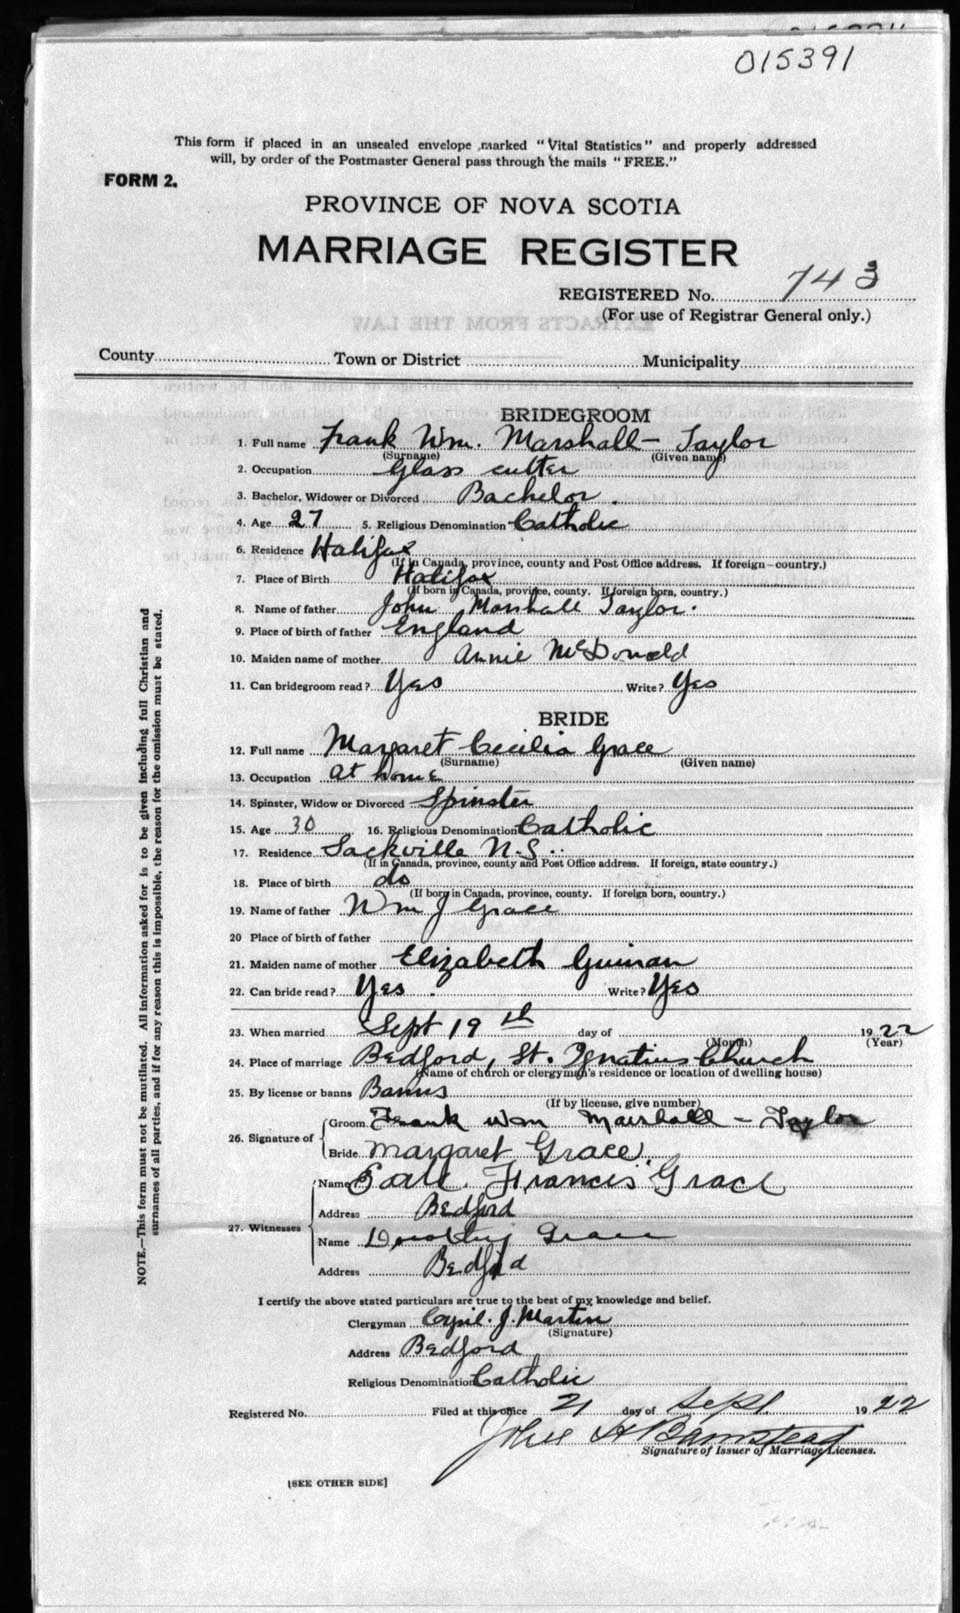 015391
This form if placed in an unsealed envelope marked "Vital Statistics" and properly addressed
will, by order of the Postmaster General pass through the mails "FREE."
FORM 2.
PROVINCE OF NOVA SCOTIA
MARRIAGE REGISTER
REGISTERED No. 743
(For use of Registrar General only.)
EXTRACTS FROM THE LAW
County Town or District Municipality
BRIDEGROOM
1. Full name Frank Wm. Marshall-Taylor
(Surname) (Given name)
2. Occupation Glass cutter
3. Bachelor, Widower or Divorced Bachelor.
4. Age 27 5. Religious Denomination Catholic
6. Residence Halifax
(If in Canada, province, county and Post Office address. If foreign-country.)
7. Place of Birth Halifax
(If born in Canada, province, county. If foreign born, country.)
8. Name of father John Marshall Taylor.
9. Place of birth of father England
10. Maiden name of mother Annie McDonald
11. Can bridegroom read? Yes Write? Yes
BRIDE
12. Full name Margaret Cecilia Grace
(Surname) (Given name)
13. Occupation at home
14. Spinster, Widow or Divorced Spinster
15. Age 30 16. Religious Denomination Catholic
17. Residence Sackville N.S.
(If in Canada, province, county and Post Office address. If foreign, state country.)
18. Place of birth do
(If born in Canada, province, county. If foreign born, country.)
19. Name of father Wm J Grace
20 Place of birth of father
21. Maiden name of mother Elizabeth Guinan
22. Can bride read? Yes. Write? Yes
23. When married Sept 19th day of 1922
(Month) (Year)
24. Place of marriage Bedford, St. Ignatius Church
(Name of church or clergyman's residence or location of dwelling house)
25. By license or banns Banns
(If by license, give number)
26. Signature of Groom Frank Wm Marshall-Taylor
Bride Margaret Grace.
27. Witnesses Name Earl Francis Grace
Address Bedford
Name Dorothy Grace
Address Bedford
I certify the above stated particulars are true to the best of my knowledge and belief.
Clergyman Cyril. J. Martin
(Signature)
Address Bedford
Religious Denomination Catholic
Registered No. Filed at this office 21 day of Sept. 1922
John H Barnstead
Signature of Issuer of Marriage Licenses.
[SEE OTHER SIDE]
NOTE.—This form must not be mutilated. All information asked for is to be given including full Christian and
surnames of all parties, and if for any reason this is impossible, the reason for the omission must be stated.